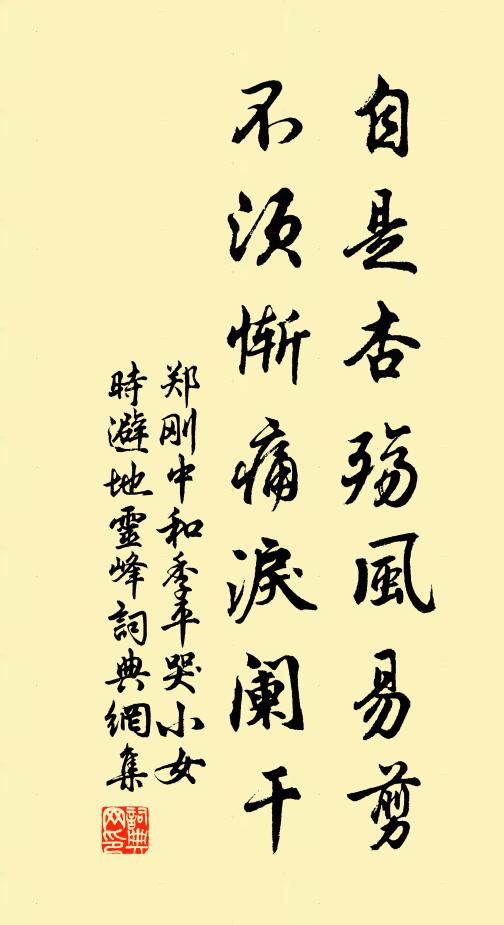 自是杏殇風易剪
不须惭痛淚阑干
郑刚中和季平哭小女
時避地靈峰詞典網集
詞典
网印